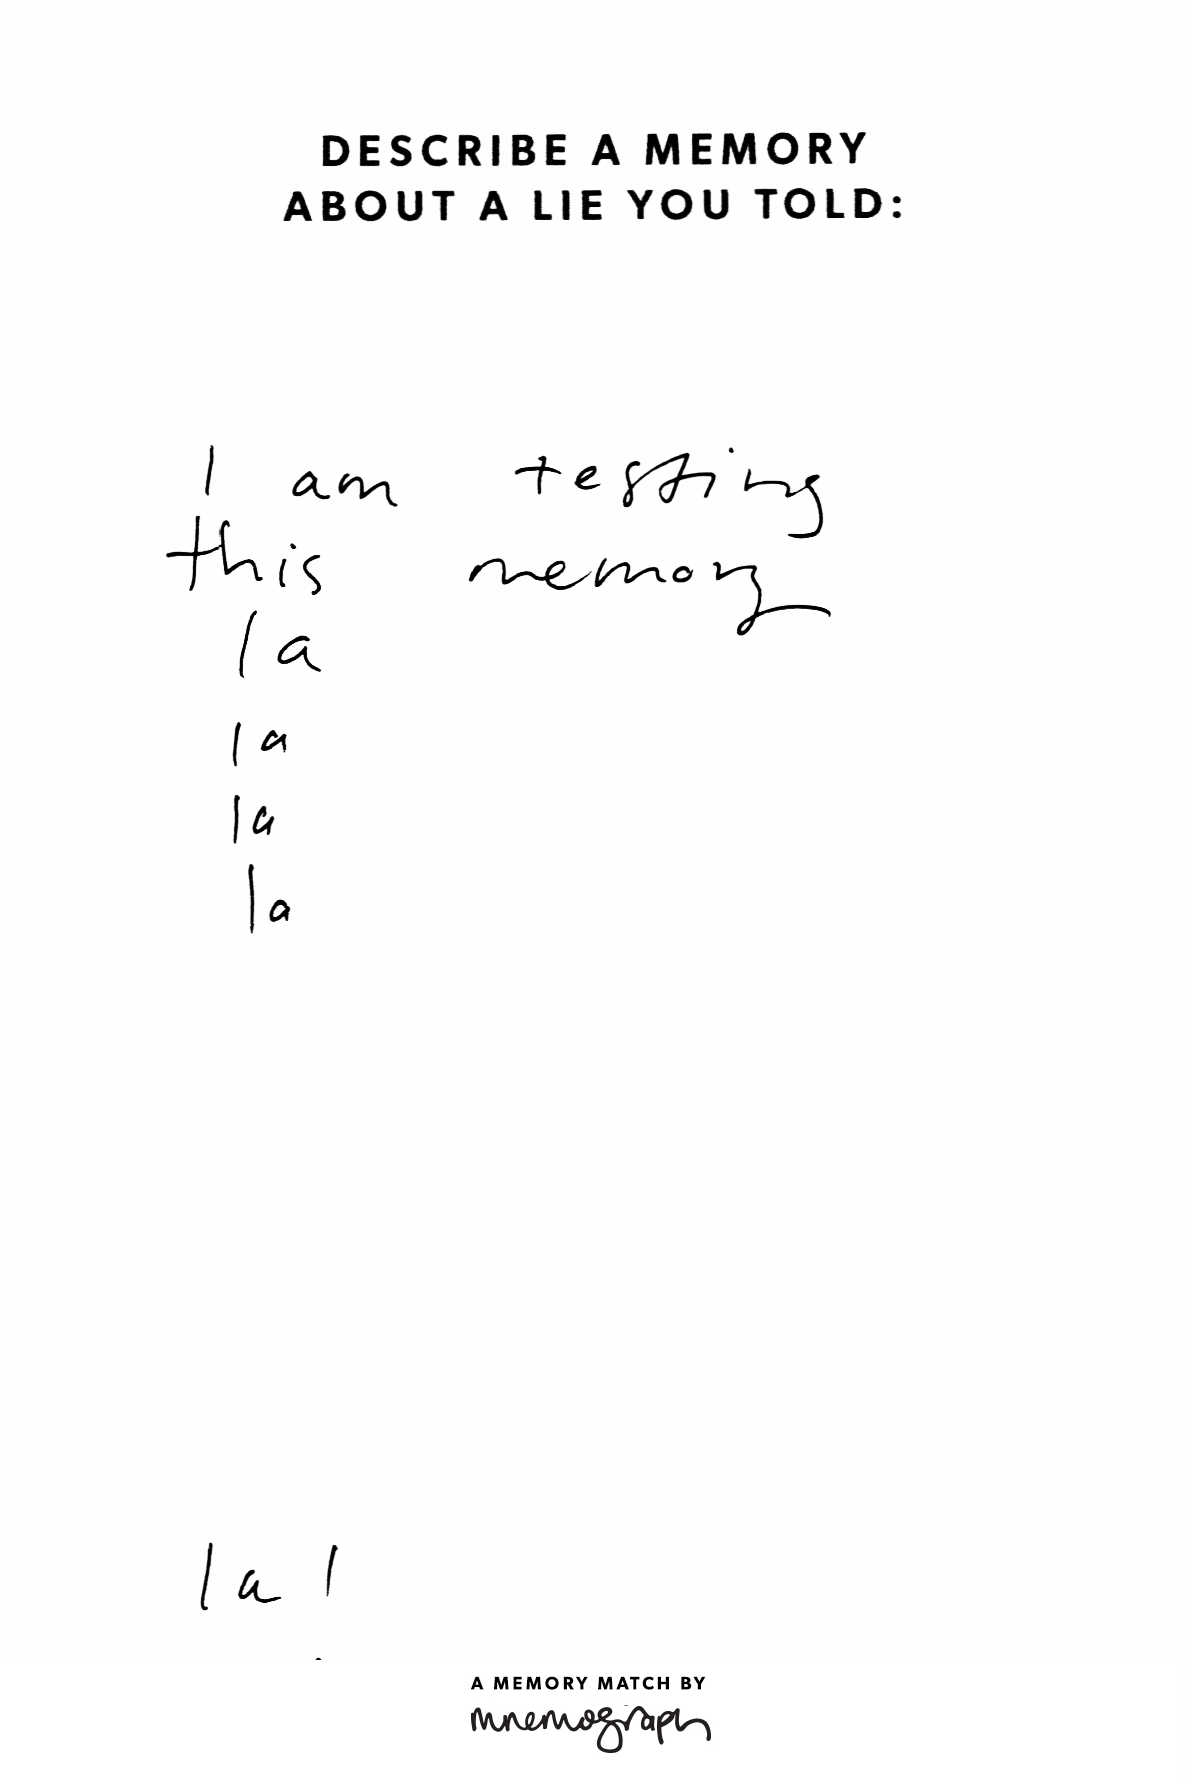 DESCRIBE A MEMORY
ABOUT A LIE YOU TOLD:
I am testing
this memory
la
la
la
la
la !
A MEMORY MATCH BY
mnemograph